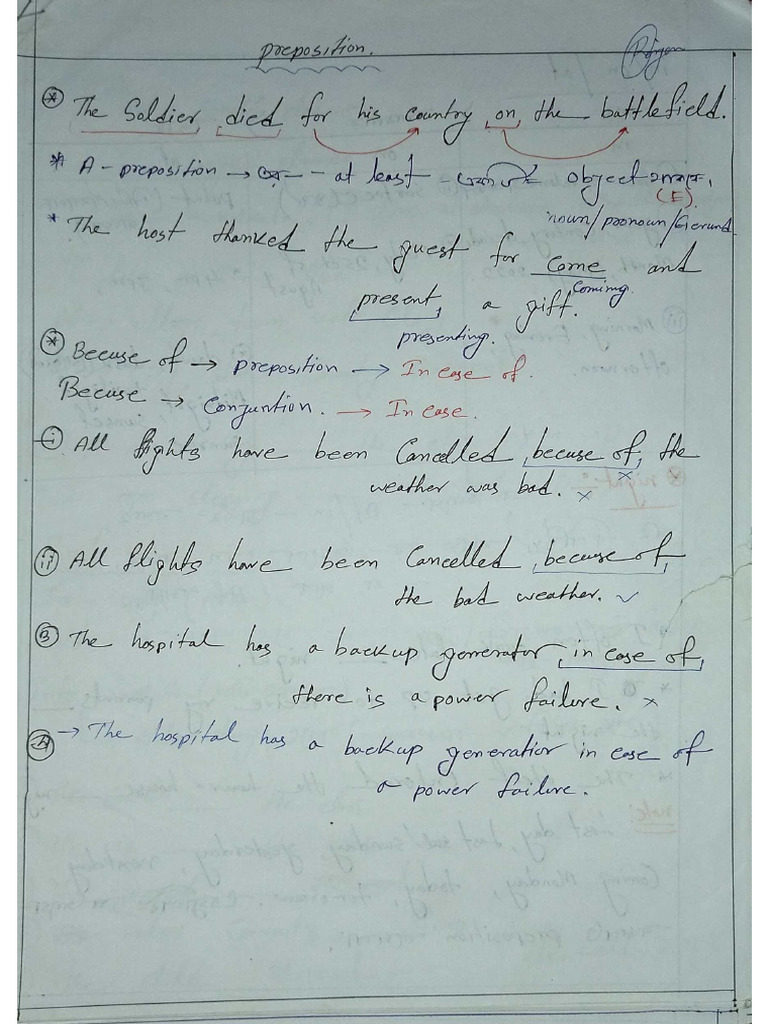 preposition.
The Soldier died for his country on the battlefield.
A - preposition → এর - at least একটি object থাকবে।
(I)
noun/pronoun/Gerund
The host thanked the guest for come and
coming
present a gift.
presenting.
Becuse of → preposition → In case of.
Becuse → Conjuntion. → In case.
i All flights have been Cancelled becuse of the
weather was bad. ×
ii All flights have been Cancelled because of
the bad weather. ✓
B The hospital has a backup generator in case of
there is a power failure. ×
→ The hospital has a backup generatior in case of
a power failure.